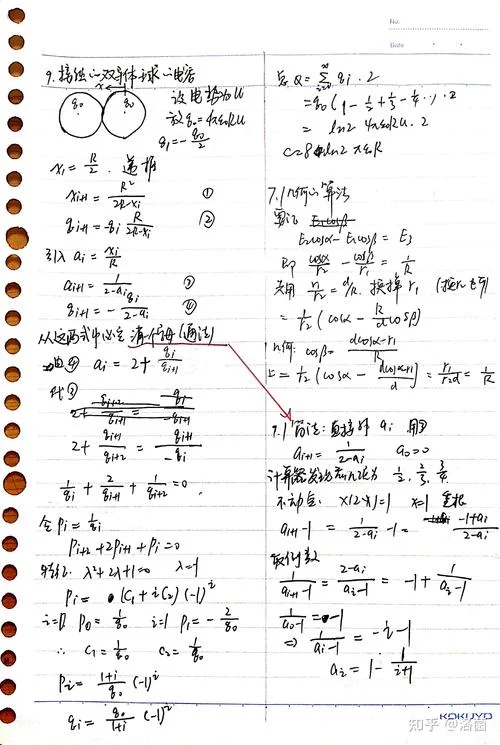 9. 接触的双导体球的电容
x
q₀ q₀
设电势为U
放q₀=4πε₀RU
q₁=-q₀/2
x₁=R/2. 递推
xᵢ₊₁=R²/(2R-xᵢ) ①
qᵢ₊₁=-qᵢ R/(2R-xᵢ) ②
引入 aᵢ=xᵢ/R
aᵢ₊₁=1/(2-aᵢ) ③
qᵢ₊₁=-qᵢ/(2-aᵢ) ④
从这两式中必定消一个母(通法)
由④ aᵢ=2+qᵢ/qᵢ₊₁
代③
2+qᵢ₊₁/qᵢ₊₂=qᵢ₊₁/-qᵢ
1/qᵢ+2/qᵢ₊₁+1/qᵢ₊₂=0.
令pᵢ=1/qᵢ
pᵢ₊₂+2pᵢ₊₁+pᵢ=0
特征. λ²+2λ+1=0 λ=-1
pᵢ=(C₁+iC₂)(-1)ⁱ
i=0 p₀=1/q₀ i=1 p₁=-2/q₀
∴ C₁=1/q₀ C₂=1/q₀
pᵢ=(1+i)/q₀ (-1)ⁱ
qᵢ=q₀/(1+i) (-1)ⁱ
总Q=∑(i=0→∞) qᵢ·2
=q₀(1-1/2+1/3-1/4…)·2
=ln2 4πε₀RU.2
C=8ln2 πε₀R
7.1 几何的算法
E₂cosα-E₁cosβ=E₃
即 cosα/r₂-cosβ/r₁=1/R
关用 r₁/r₂=d/R. 换掉r₁
=1/r₂(cosα-R/d cosβ)
几何: cosβ=(dcosα-r₁)/R
上=1/r₂(cosα-(dcosα-r₁)/d)=r₁/(r₂d)=1/R
9.1 算法:直接解 aᵢ 用③
aᵢ₊₁=1/(2-aᵢ) a₀=0
计算器发现依次为 1/2, 2/3, 3/4
不动点: x(2-x)=1 x=1 重根
aᵢ₊₁-1=1/(2-aᵢ)-1=(-1+aᵢ)/(2-aᵢ)
取倒数
1/(aᵢ₊₁-1)=(2-aᵢ)/(aᵢ-1)=-1+1/(aᵢ-1)
1/(a₀-1)=-1
⇒ 1/(aᵢ-1)=-i-1
aᵢ=1-1/(i+1)
No.
Date
知乎 @洛茵
KOKUYO